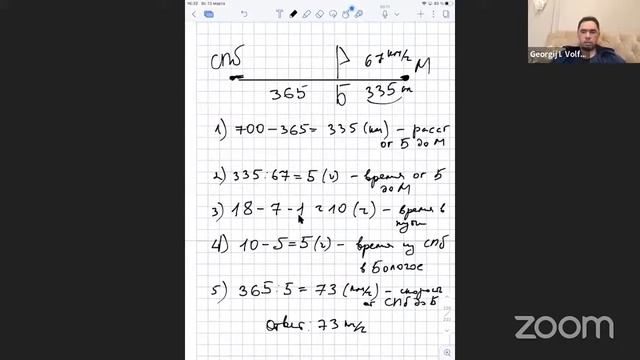 16:32 Вс 13 марта
СПб
67 км/ч
М
365
Б
335 км
1) 700 - 365 = 335 (км) - расст
от Б до М
2) 335 : 67 = 5 (ч) - время от Б
до М
3) 18 - 7 - 1 = 10 (ч) - время в
пути
4) 10 - 5 = 5 (ч) - время из СПб
в Бологое
5) 365 : 5 = 73 (км/ч) - скорость
от СПб до Б
Ответ: 73 км/ч
Georgij I. Volf...
zoom